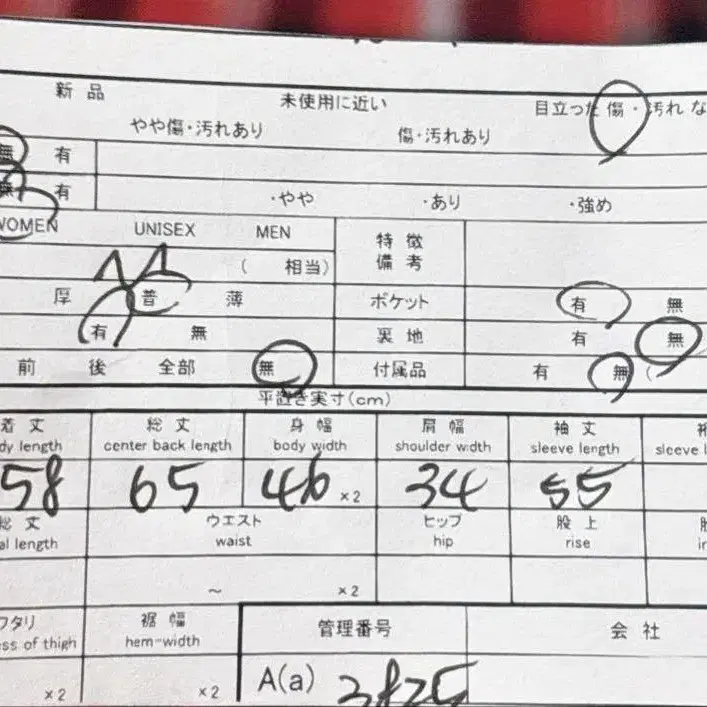 新品 未使用に近い 目立った傷・汚れな
やや傷・汚れあり 傷・汚れあり
無 有
無 有 ・やや ・あり ・強め
WOMEN UNISEX MEN 特徴
備考
( 相当)
厚 普 薄 ポケット 有 無
有 無 裏地 有 無
前 後 全部 無 付属品 有 無 (
平置き実寸(cm)
着丈 総丈 身幅 肩幅 袖丈 裄
dy length center back length body width shoulder width sleeve length sleeve l
58 65 46 ×2 34 55
総丈 ウエスト ヒップ 股上 股
al length waist hip rise in
~ ×2
ワタリ 裾幅 管理番号 会社
ess of thigh hem-width
×2 ×2 A(a) 3825